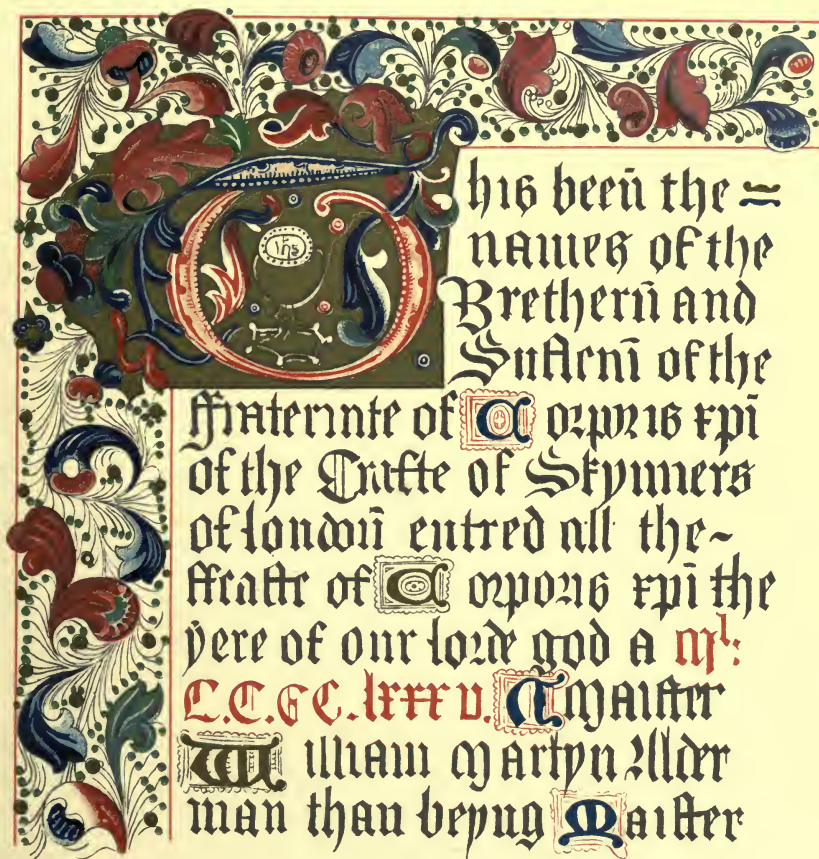 This beeñ the =
names of the
Bretherñ and
Susterñ of the
ffraternite of Corporis xpī
of the Crafte of Skynners
of londoñ entred att the~
ffeaste of Corporis xpī the
yere of our lorde god a Ml:
C.C.C.C.lxxxv. A Maister
William Martyn Alder
man than beyng Maister
ihs